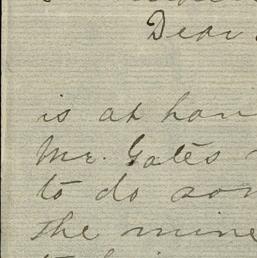 Dear
is at han
Mr. Gates
to do som
the mine